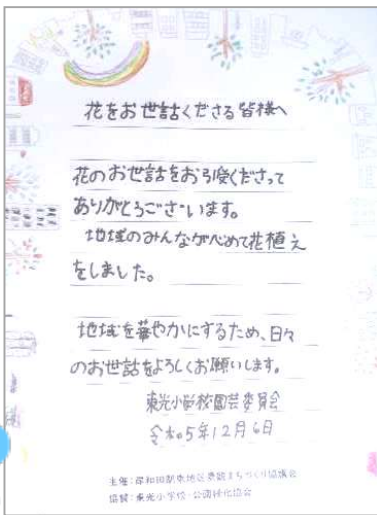 花をお世話くださる皆様へ
花のお世話をお引受くださって
ありがとうございます。
地域のみんなが心をこめて花植え
をしました。
地域を華やかにするため、日々
のお世話をよろしくお願いします。
東光小学校園芸委員会
令和5年12月6日
主催:岸和田駅東地区景観まちづくり協議会
協賛:東光小学校・公園緑化協会